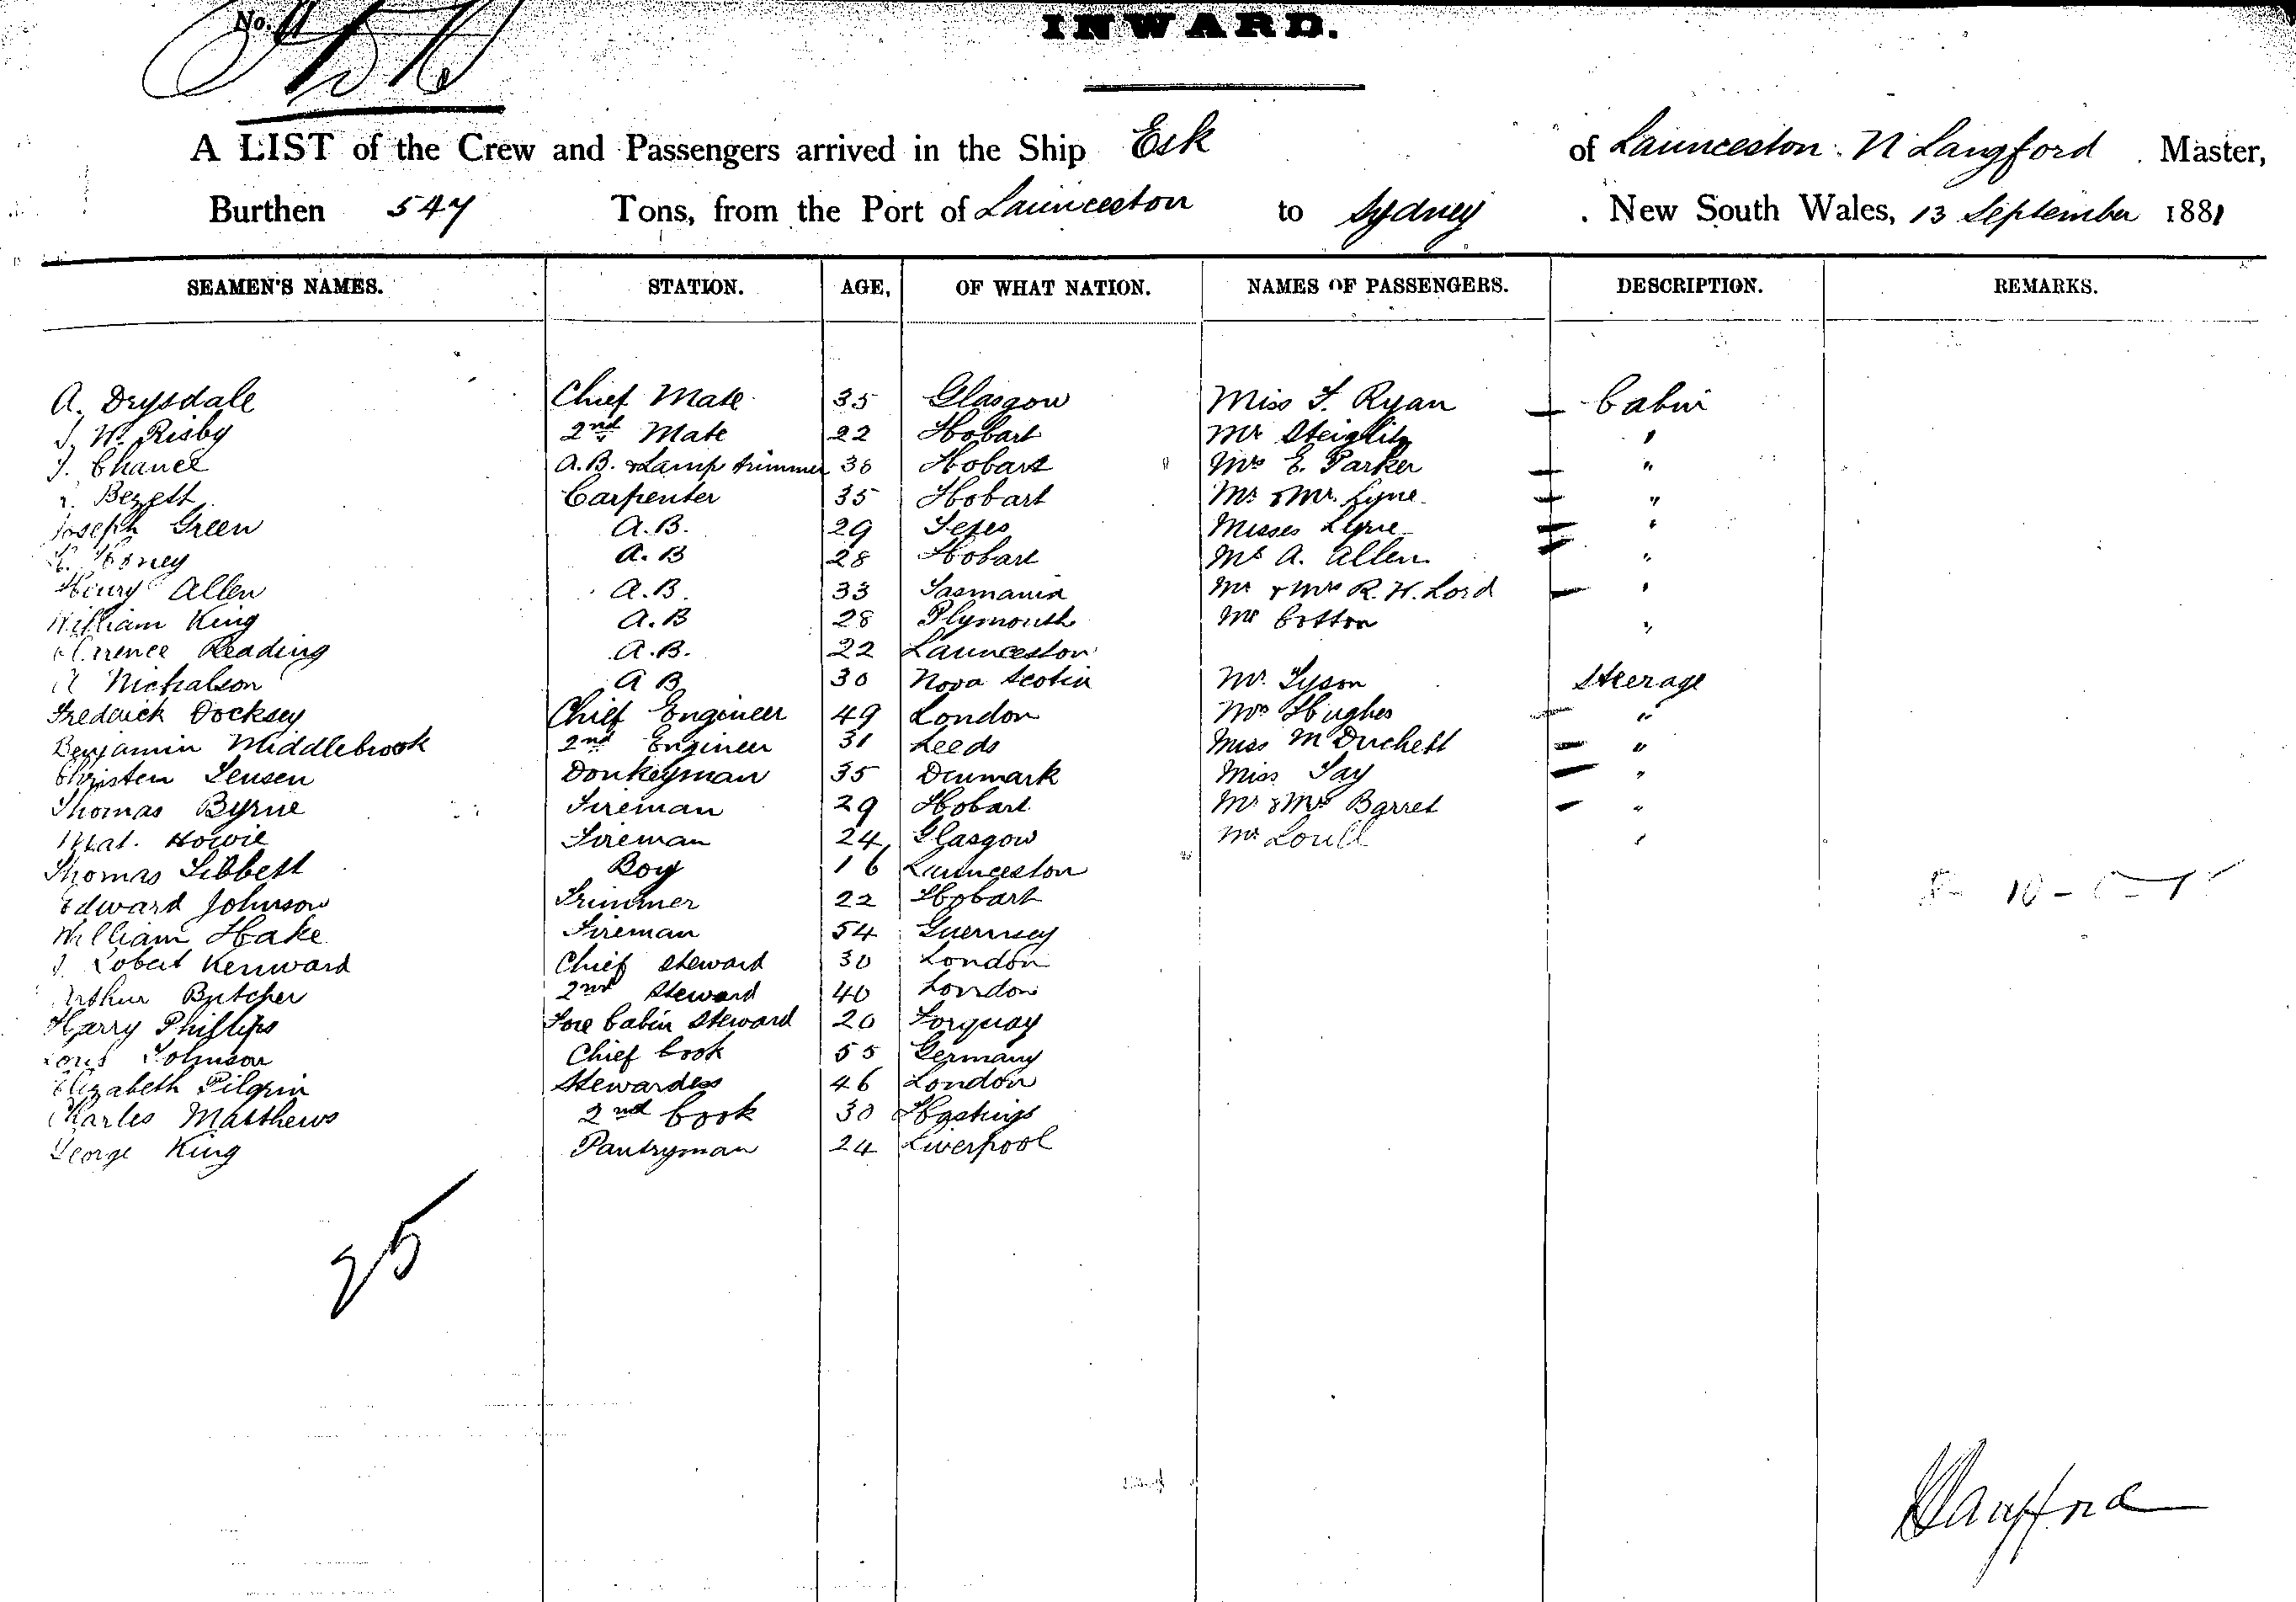 No.
INWARD.
A LIST of the Crew and Passengers arrived in the Ship Esk of Launceston. N Langford Master,
Burthen 547 Tons, from the Port of Launceston to Sydney . New South Wales, 13 September 1881
SEAMEN'S NAMES. STATION. AGE, OF WHAT NATION. NAMES OF PASSENGERS. DESCRIPTION. REMARKS.
A. Drysdale Chief Mate 35 Glasgow Miss F. Ryan — Cabin
W. Risby 2nd Mate 22 Hobart Mr Steiglitz "
Chance A.B. & Lamp trimmer 36 Hobart Mrs E. Parker — "
Bezett Carpenter 35 Hobart Mr & Mrs. Lyne — "
Joseph Green A.B. 29 Misses Lyne "
Honey A.B 28 Hobart Mr A. Allen "
Henry Allen A.B. 33 Tasmania Mr & Mrs R. H. Lord — "
William King A.B 28 Plymouth Mr Cotton "
Clarence Reading A.B. 22 Launceston
Nicholson A B 30 Nova Scotia Mr. Tyson Steerage
Frederick Docksey Chief Engineer 49 London Mrs Hughes — "
Benjamin Middlebrook 2nd Engineer 31 Leeds Miss M Duchett — "
Christen Jensen Donkeyman 35 Denmark Miss Tay — "
Thomas Byrne Fireman 29 Hobart Mr & Mrs Barret — "
Mat. Howie Fireman 24 Glasgow Mr Lovell "
Thomas Tibbett Boy 16 Launceston
Edward Johnson Trimmer 22 Hobart
William Hake Fireman 54 Guernsey
Robert Kenward Chief Steward 30 London
Arthur Butcher 2nd Steward 40 London
Harry Phillips Fore Cabin Steward 20 Torquay
Louis Johnson Chief Cook 55 Germany
Elizabeth Pilgrim Stewardess 46 London
Charles Matthews 2nd Cook 30 Hastings
George King Pantryman 24 Liverpool
25
Langford